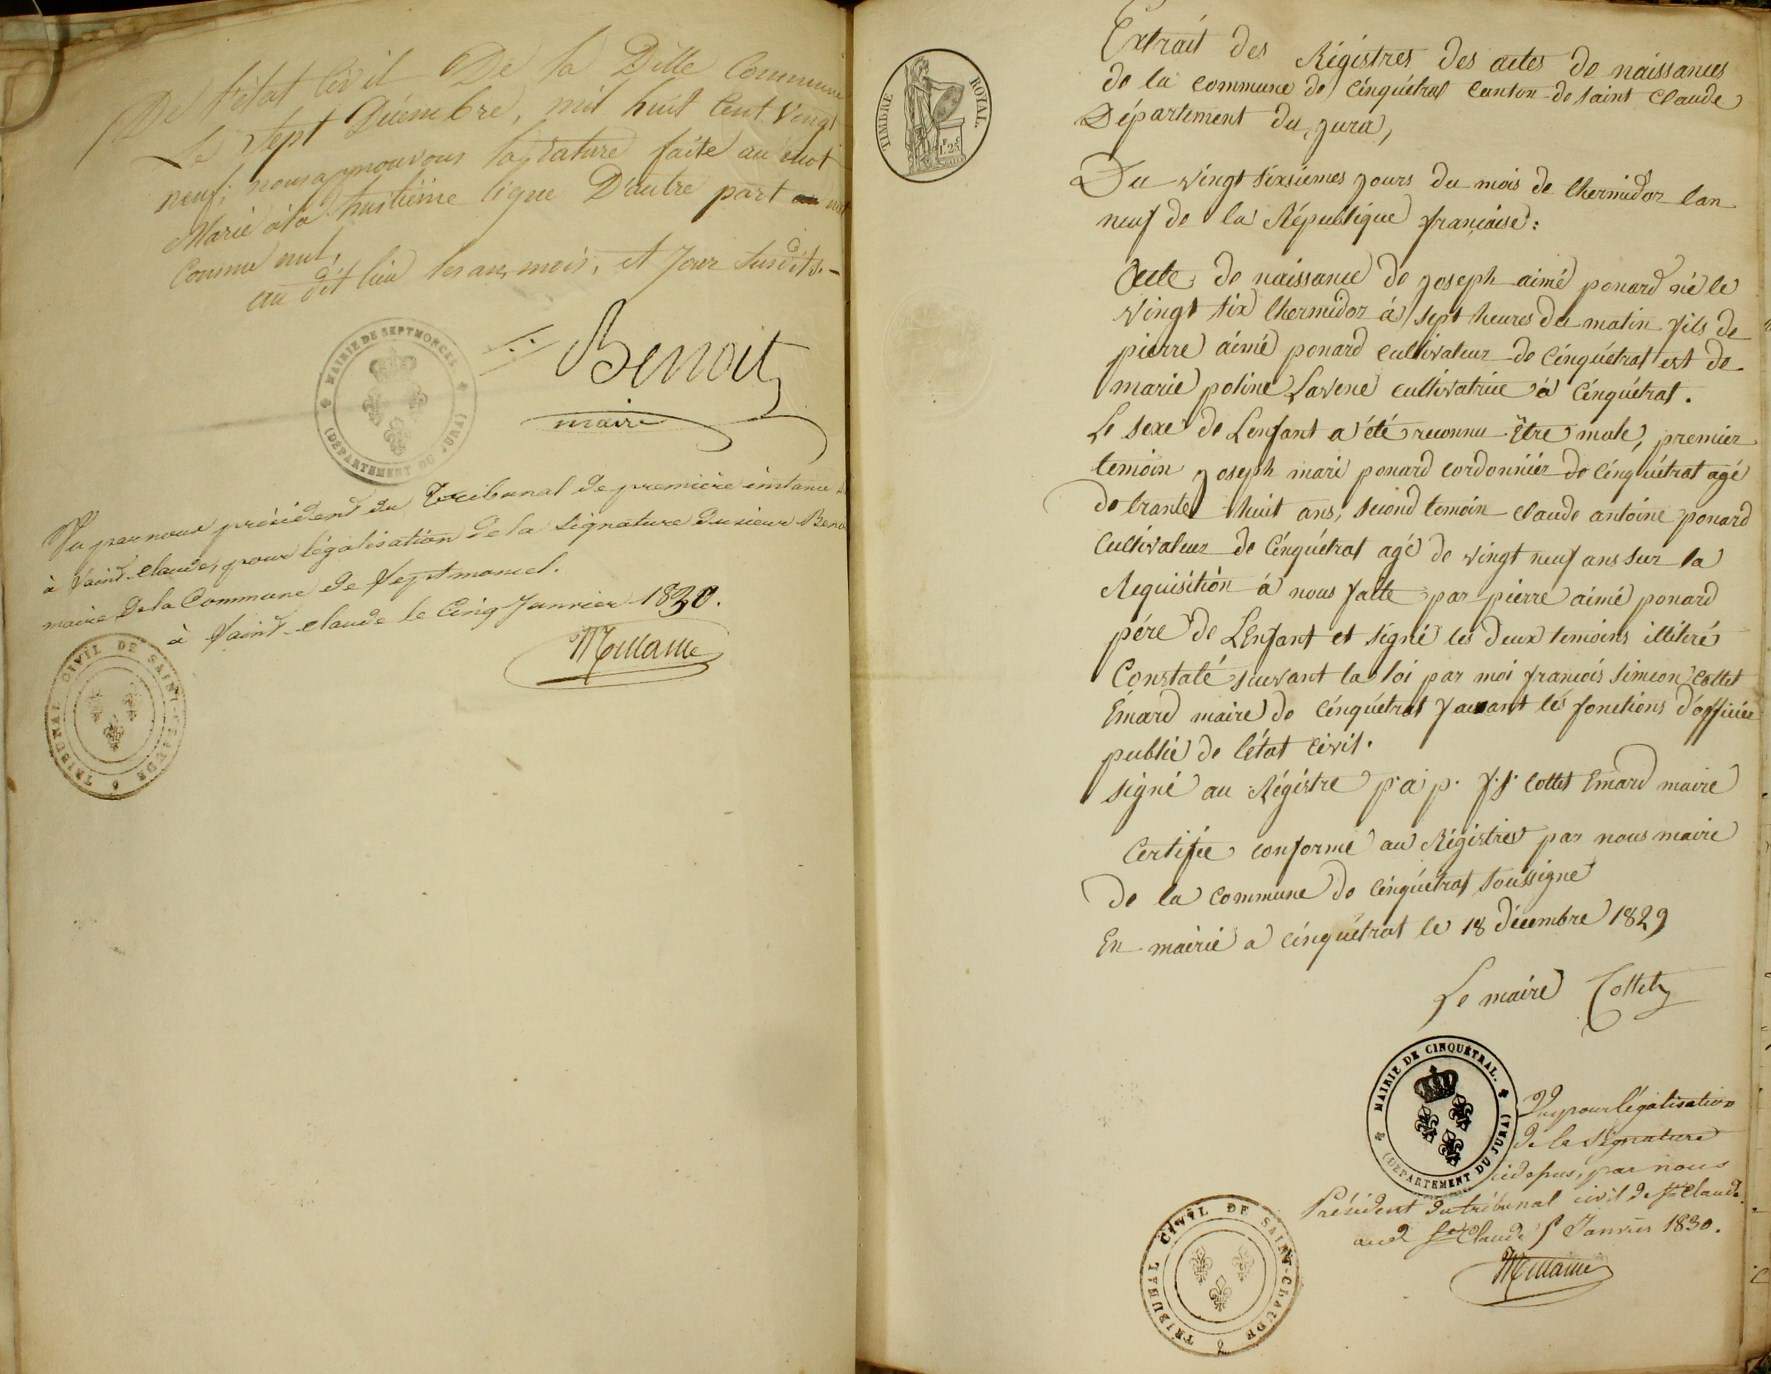 De l'état Civil De la Ditte Commune
Le Sept Décembre, mil huit Cent Vingt
neuf; nous approuvons la rature faite au mot
Marie à la huitième ligne D'autre part
Comme nul,
au dit lieu les an, mois, et Jour Susdits.
Benoit
maire
MAIRIE DE SEPTMONCEL
(DÉPARTEMENT DU JURA)
Vu par nous président du Tribunal de première instance
à Saint-Claude, pour légalisation de la Signature du sieur Benoit
maire de la Commune de Septmoncel.
à Saint-Claude le Cinq Janvier 1830.
TRIBUNAL CIVIL DE SAINT-CLAUDE
TIMBRE ROYAL
1f 25c
Extrait des Régistres des actes de naissances
de la commune de Cinquétral canton de Saint Claude
Département du jura,
Du vingt sixsiemes jours du mois de thermidor lan
neuf de la République française:
Acte de naissance de joseph aimé ponard né le
vingt six thermidor à sept heures du matin fils de
pierre aimé ponard cultivateur de Cinquétral est de
marie poline Lavene cultivatrice à Cinquétral.
Le sexe de Lenfant a été reconnu Être male, premier
temoin joseph marie ponard cordonnier de Cinquétral agé
de trante huit ans, second temoin claude antoine ponard
Cultivateur de Cinquétral agé de vingt neuf ans sur la
Requisition à nous faite par pierre aimé ponard
père de LEnfant et signé les deux temoins illitéré
Constaté suivant la loi par moi françois simeon Collet
Emard maire de Cinquétral faisant les fonctions d'officiée
public de létat civil.
signé au Régistre p. a. p. f. s. Collet Emard maire
Certifiée conforme au Régistres par nous maire
de la commune de Cinquétral soussigné
En mairie a Cinquétral le 18 décembre 1829
Le maire Collet
MAIRIE DE CINQUÉTRAL.
(DÉPARTEMENT DU JURA)
Vu pour légalisation
de la signature
cidessus, par nous
Président du tribunal civil de St Claude.
St Claude 5 Janvier 1830.
TRIBUNAL CIVIL DE SAINT-CLAUDE